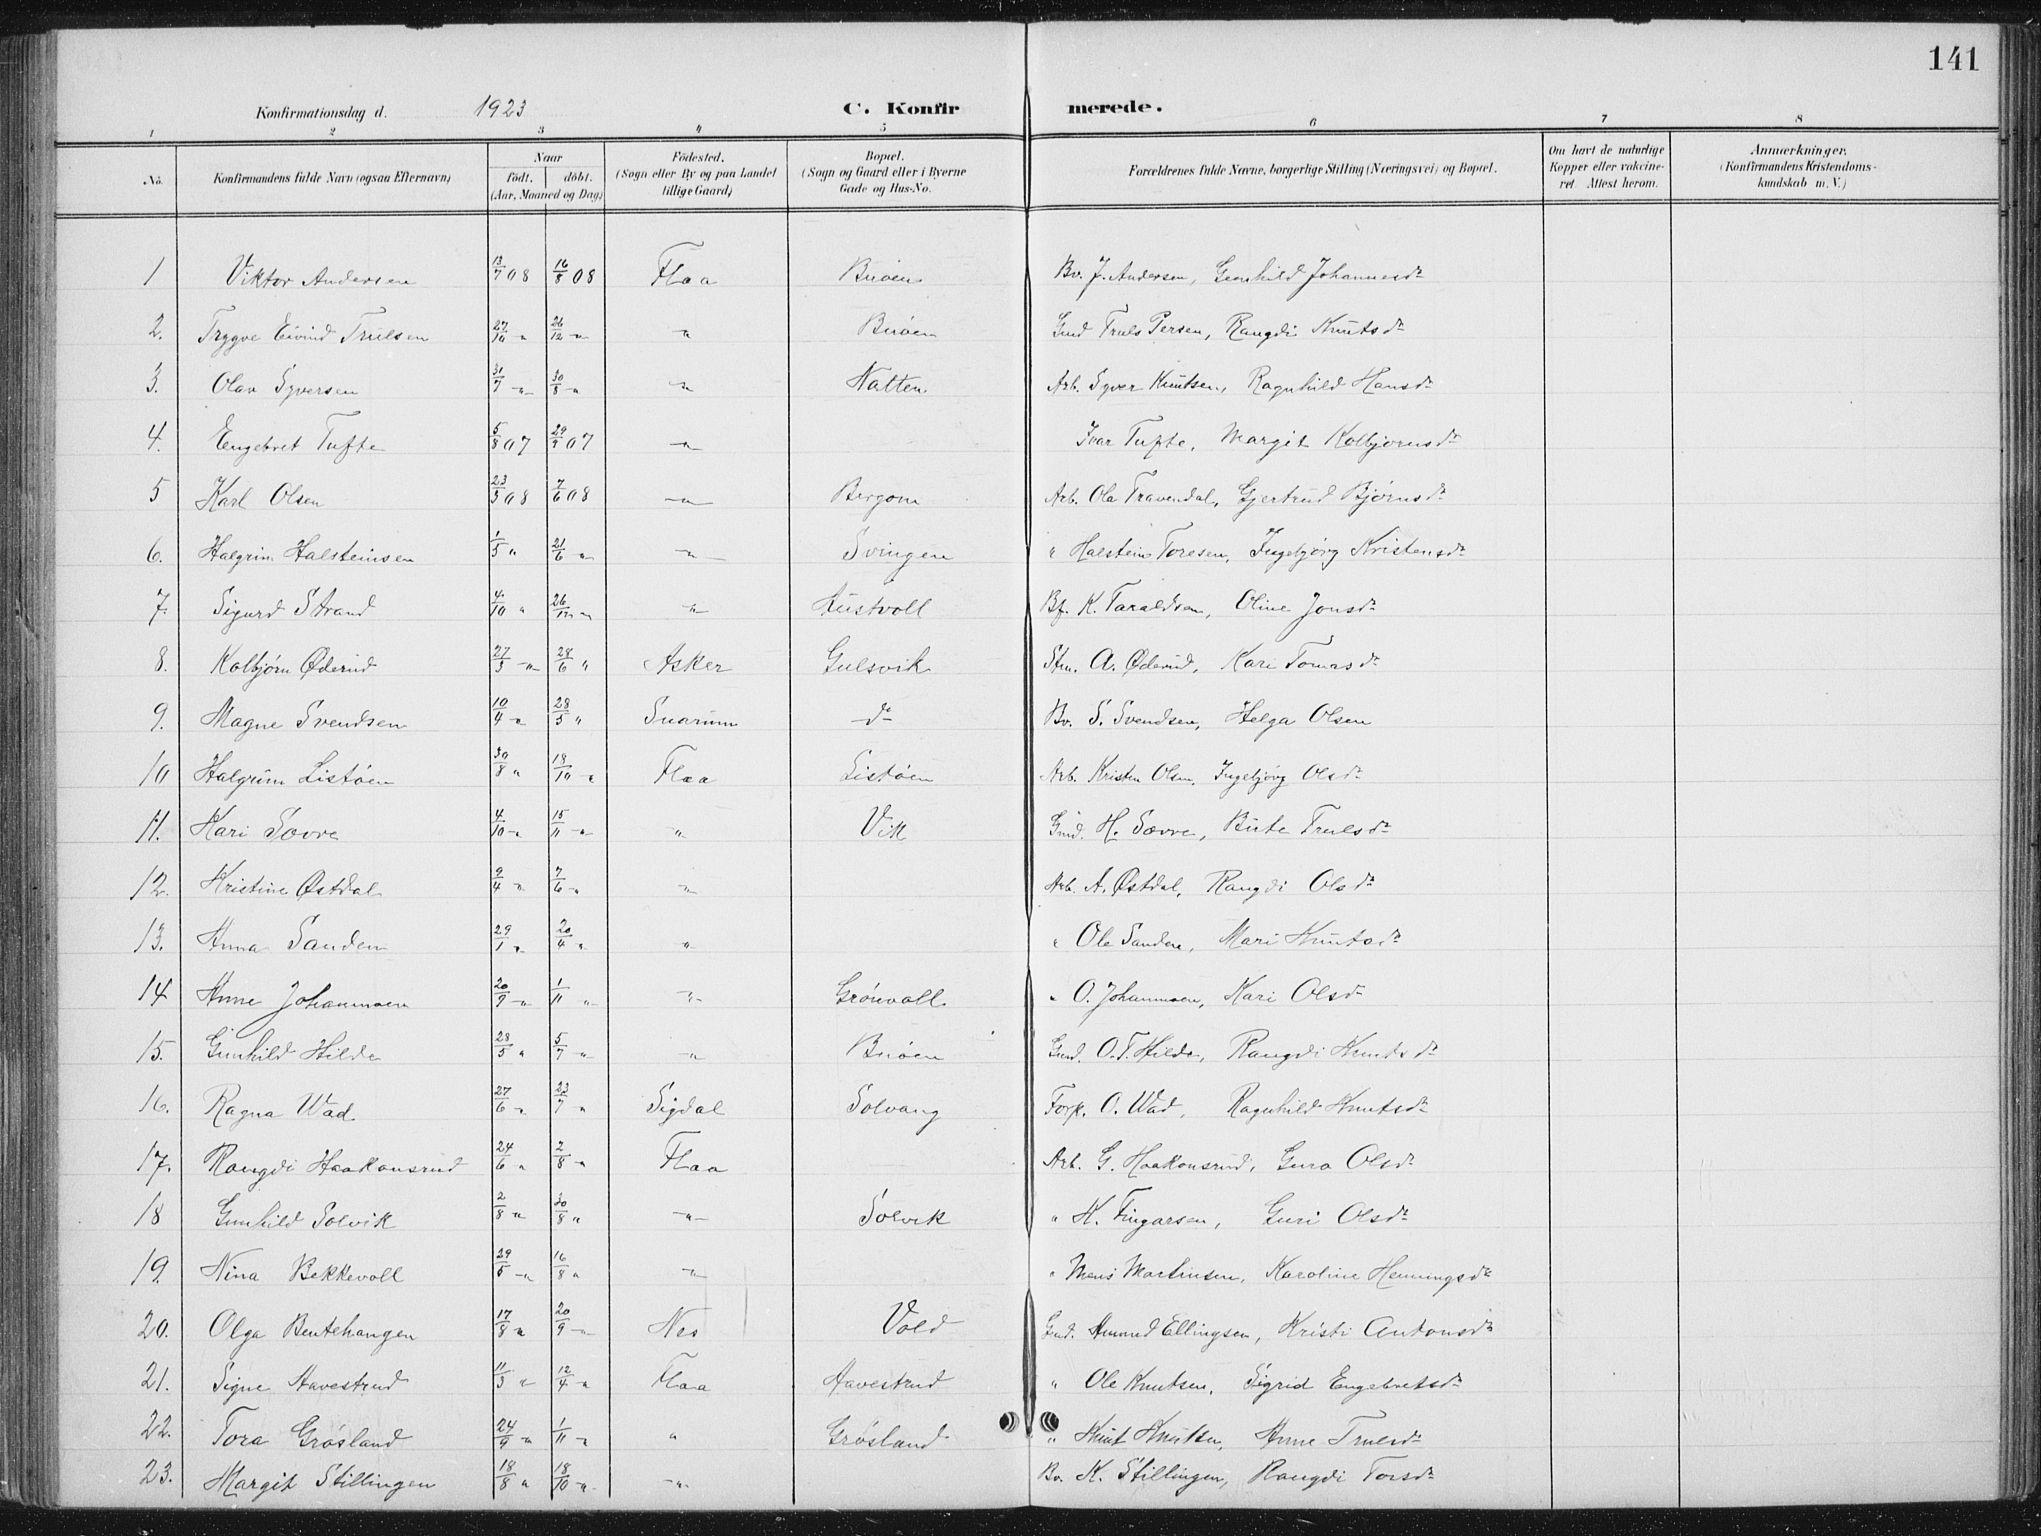 141
Konfirmationsdag d. 1923 C. Konfirmerede.
1 2 3 4 5 6 7 8
No. Konfirmandens fulde Navn (ogsaa Efternavn) Naar født. døbt. (Aar, Maaned og Dag) Fødested. (Sogn eller By og paa Landet tillige Gaard) Bopæl. (Sogn og Gaard eller i Byerne Gade og Hus-No. Forældrenes fulde Navne, borgerlige Stilling (Næringsvei) og Bopæl. Om havt de naturlige Kopper eller vakcineret. Attest herom. Anmærkninger. (Konfirmandens Kristendomskundskab m. V.)
1 Viktor Andersen 13/7 08 16/8 08 Flaa Bv. J. Andersen, Gunhild Johannesdr
2. Trygve Eivind Trulsen 27/10 " 26/12 " " Gmd Truls Persen, Rangdi Knutsdr
3. Olav Syversen 31/7 " 30/8 " " Natten Arb. Syver Knutsen, Ragnhild Hansdr
4. Engebret Tufte 5/8 07 29/9 07 " Ivar Tufte, Margit Kolbjørnsdr
5 Karl Olsen 23/3 08 7/6 08 " Bergom Arb. Ola Travendal, Gjertrud Bjørnsdr
6. Halgrim Halsteinsen 1/5 " 21/6 " " Svingen " Halstein Toresen, Ingebjørg Kristensdr
7. Sigurd Strand 4/10 " 26/12 " " Austvoll Bf. K. Taraldsen, Oline Jonsdr
8. Kolbjørn Øderud 27/3 " 28/6 " Asker Gulsvik Stm. A. Øderud, Kari Tomasdr
9. Magne Svendsen 10/4 " 28/5 " Snarum do Bv. S. Svendsen, Helga Olsen
10 Halgrim Listøen 30/8 " 18/10 " Flaa Listøen Arb. Kristen Olsen, Ingebjørg Olsdr
11. Kari Sævre 4/10 " 15/11 " " Vik Gmd. H. Sævre, Birte Trulsdr
12. Kristine Østdal 9/4 " 7/6 " " Arb. A. Østdal, Rangdi Olsdr
13. Anna Sanden 29/1 " 20/4 " " " Ole Sanden, Mari Knutsdr
14 Anne Johanmoen 20/9 " 1/11 " " Grønvoll " O. Johanmoen, Kari Olsdr
15. Gunhild Hilde 28/5 " 5/7 " " Gmd. O. T. Hilde, Rangdi Knudsdr
16. Ragna Wad 27/6 " 23/7 " Sigdal Solvang Forp. O. Wad, Ragnhild Knutsdr
17. Rangdi Haakonsrud 24/6 " 2/8 " Flaa Arb. G. Haakonsrud, Guro Olsdr
18 Gunhild Solvik 2/8 " 30/8 " " Solvik " K. Fingarsen, Guri Olsdr
19. Nina Bekkevoll 29/5 " 16/8 " " " Mons Martinsen, Karoline Henningsdr
20. Olga Bentehaugen 17/8 " 20/9 " Nes Vold Gmd. Amund Ellingsen, Kristi Antonsdr
21. Signe Aavestrud 11/3 " 12/4 " Flaa Aavestrud " Ole Knutsen, Sigrid Engebretsdr
22. Tora Grøsland 24/9 " 1/11 " " Grøsland " Knut Knutsen, Anne Trulsdr
23. Margit Stillingen 18/8 " 18/10 " " Bv. K. Stillingen, Rangdi Torsdr